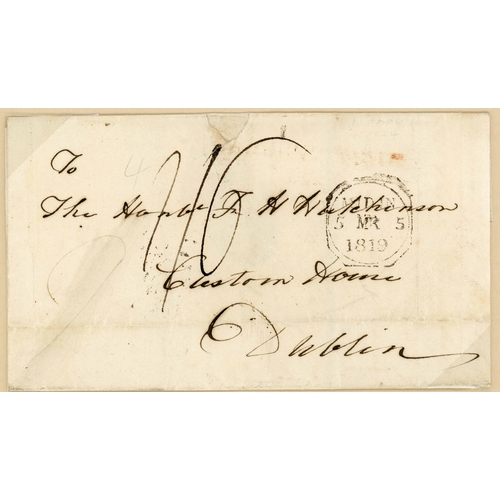 To
The Honble Fr H Hutchinson
5 MR 5
1819
Custom House
Dublin